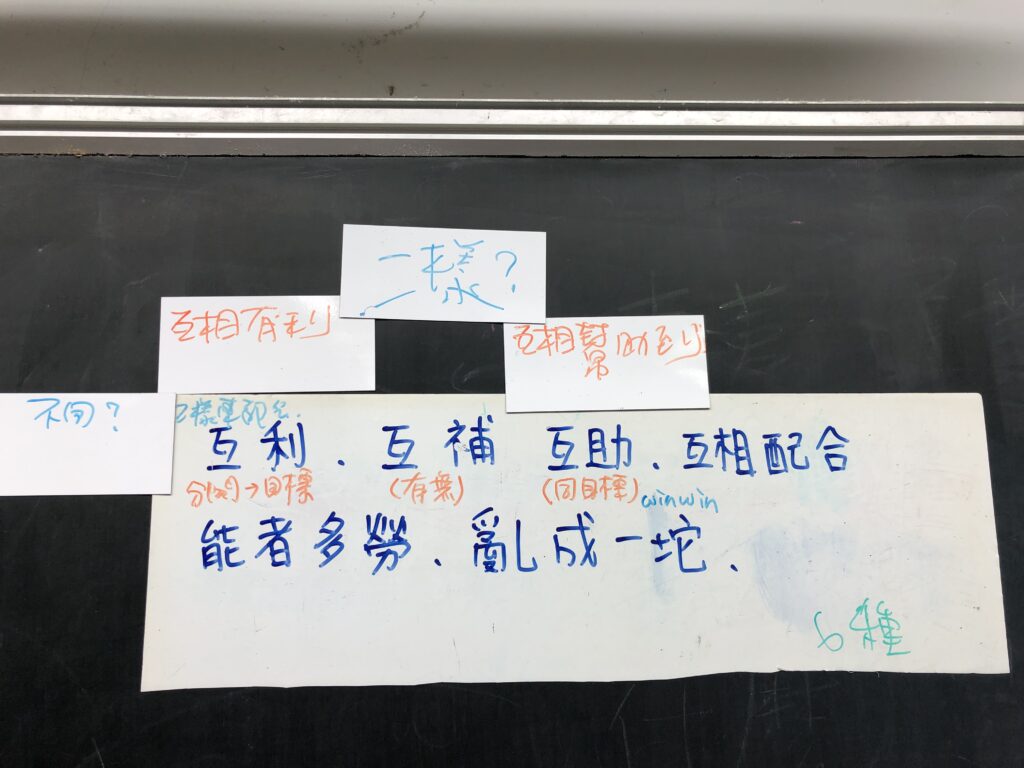 一樣?
互相有利
互相幫助到
不同?
互利、互補 互助、互相配合
→目標 (有無) (同目標) winwin
能者多勞、亂成一坨、
6種